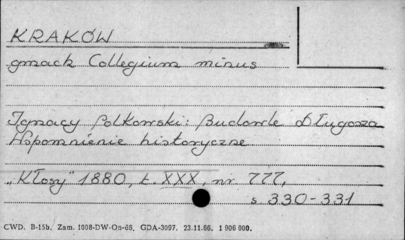 KRAKÓW
gmach Collegium minus
Ignacy Polkowski: Budowle Długosza
Wspomnienie historyczne
"Kłosy" 1880, t. XXX, nr. 777,
s 330-331
CWD. B-15b. Zam. 1998-DW-On-66, GDA-3097. 23.11.66. 1 906 000.